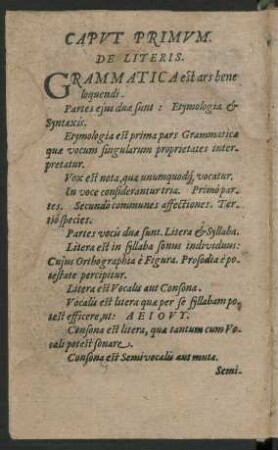 CAPVT PRIMVM.
DE LITERIS.
GRAMMATICA est ars bene
loquendi.
Partes ejus duæ sunt: Etymologia &
Syntaxis.
Etymologia est prima pars Grammaticæ
quæ vocum singularum proprietates inter-
pretatur.
Vox est nota, quæ unumquodq; vocatur.
In voce considerantur tria. Primò par-
tes. Secundò communes affectiones. Ter-
tiò species.
Partes vocis duæ sunt. Litera & Syllaba.
Litera est in syllaba sonus individuus:
Cujus Orthographia è Figura. Prosodia è po-
testate percipitur.
Litera est Vocalis aut Consona.
Vocalis est litera quæ per se syllabam po-
test efficere, ut: A E I O V Y.
Consona est litera, quæ tantum cum Vo-
cali potest sonare.
Consona est Semivocalis aut muta.
Semi-